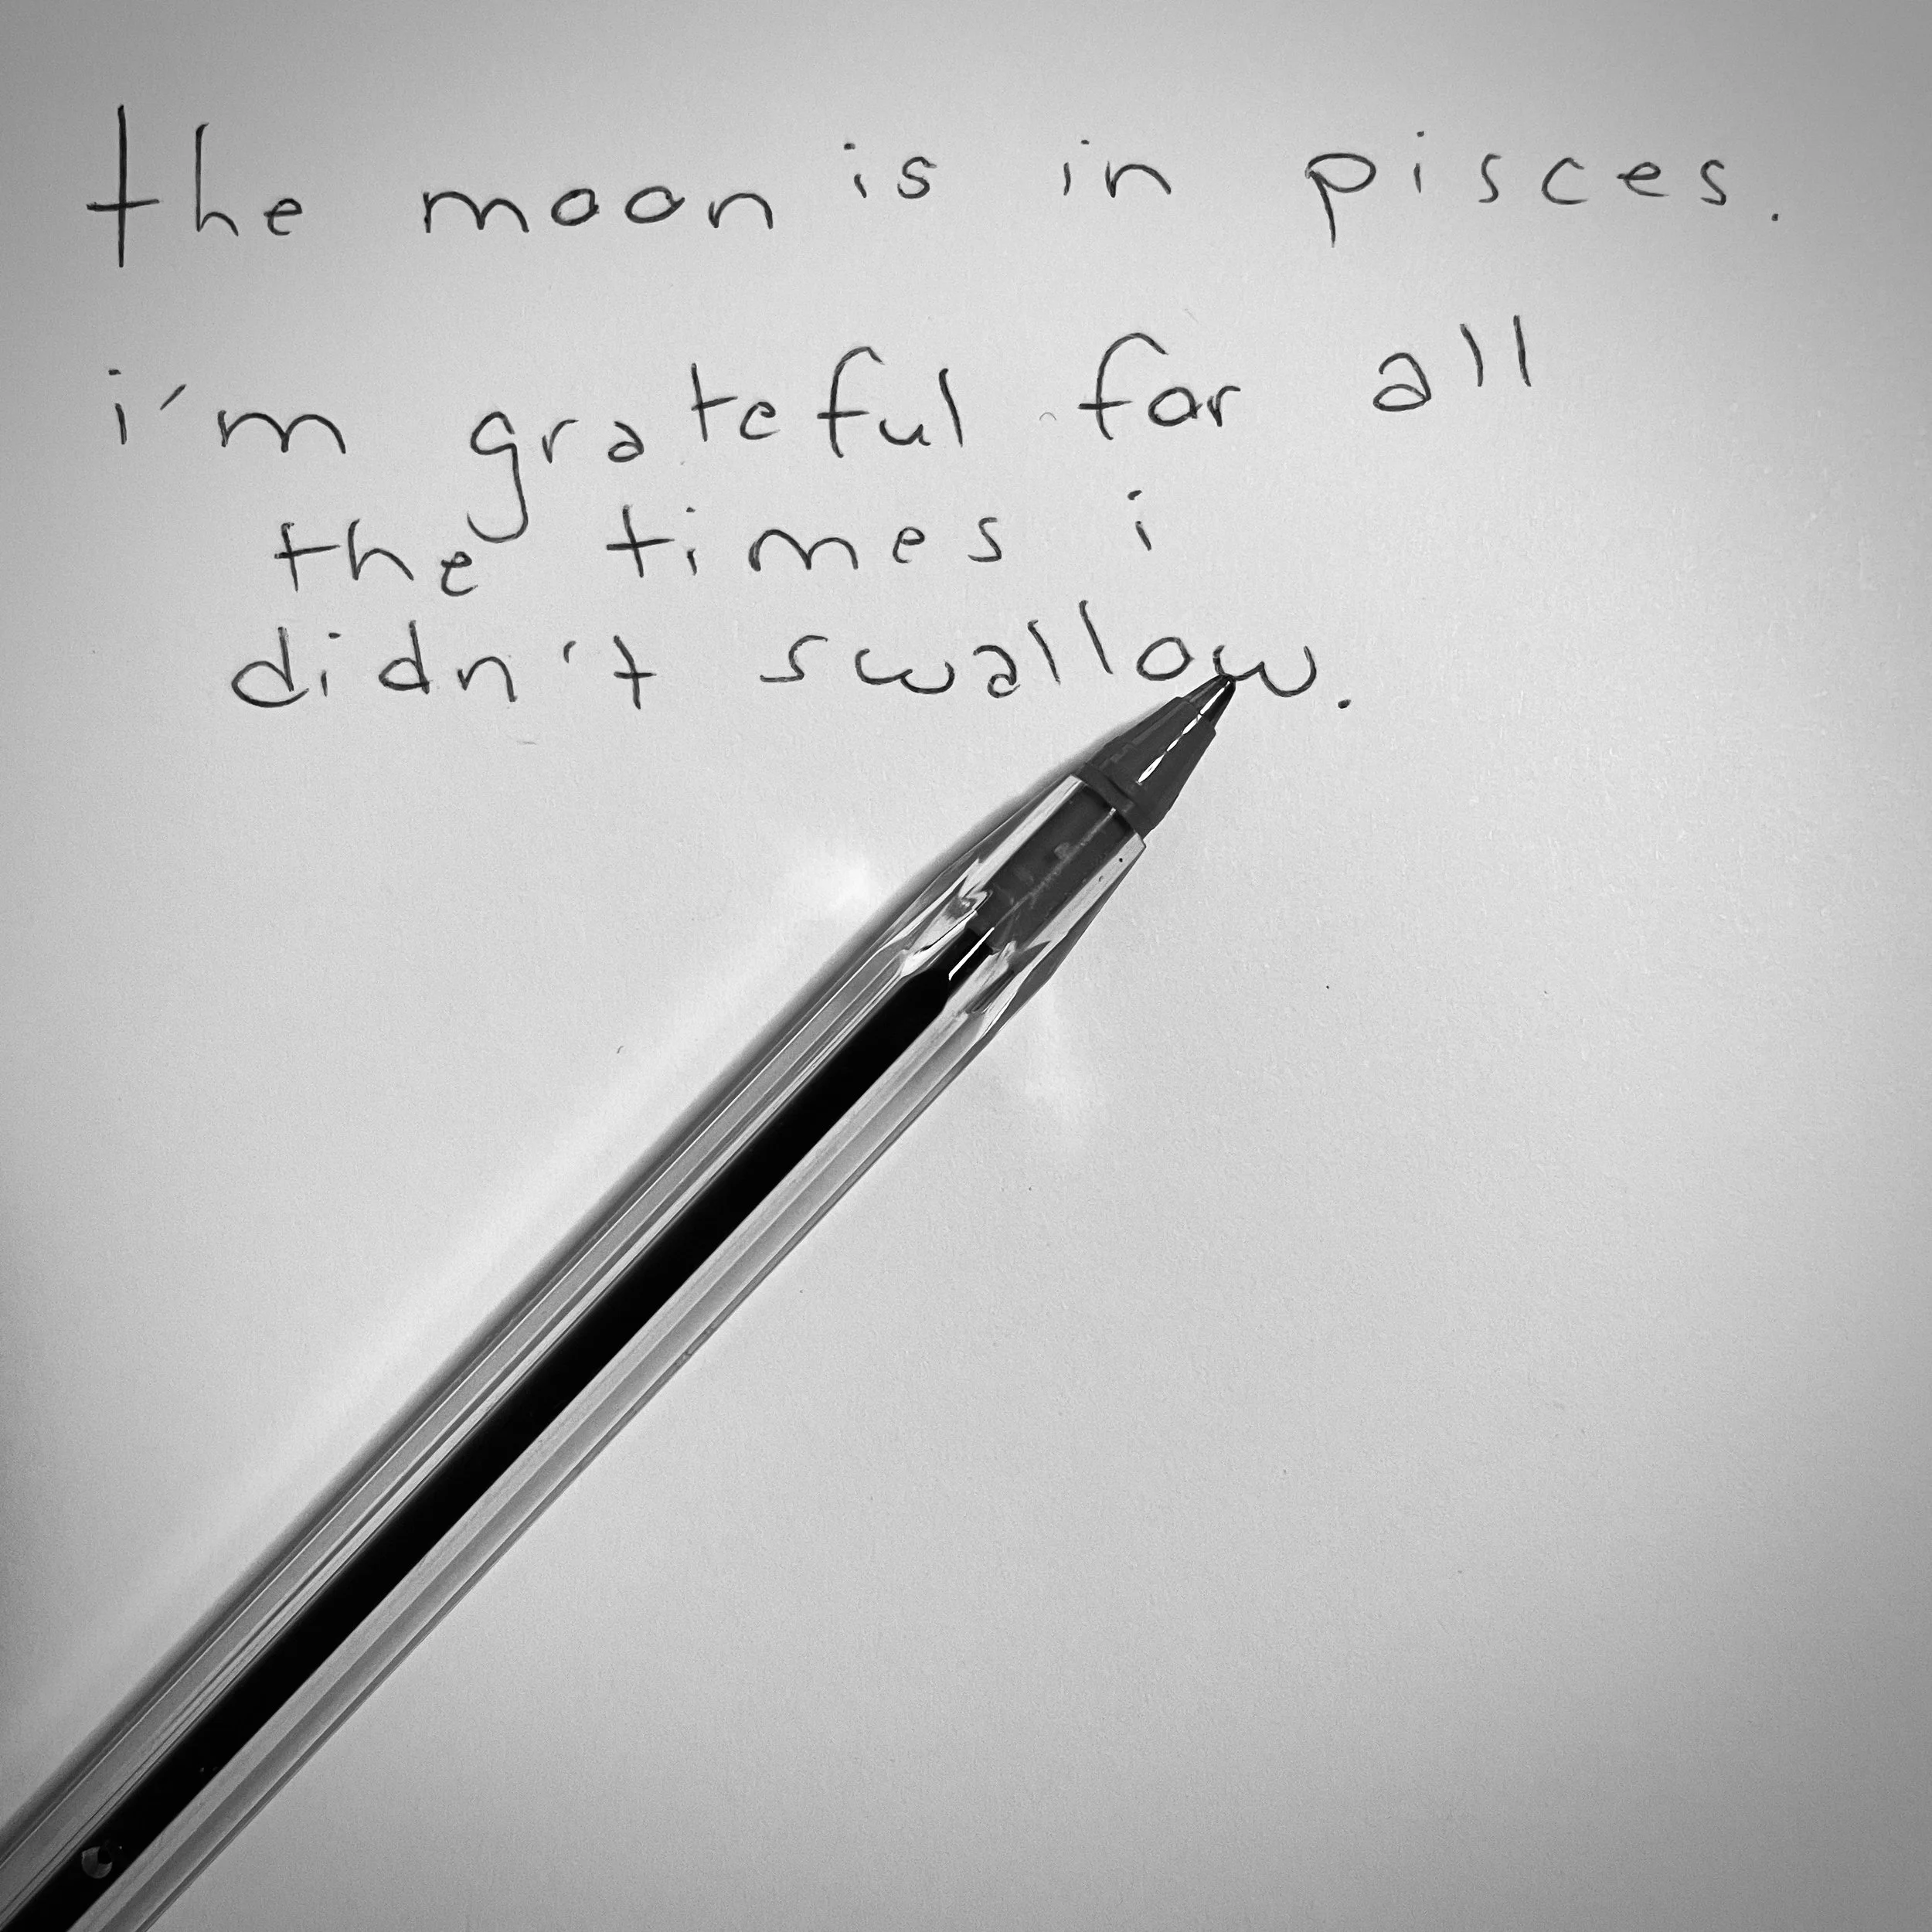 the moon is in pisces.
i'm grateful for all
the times i
didn't swallow.